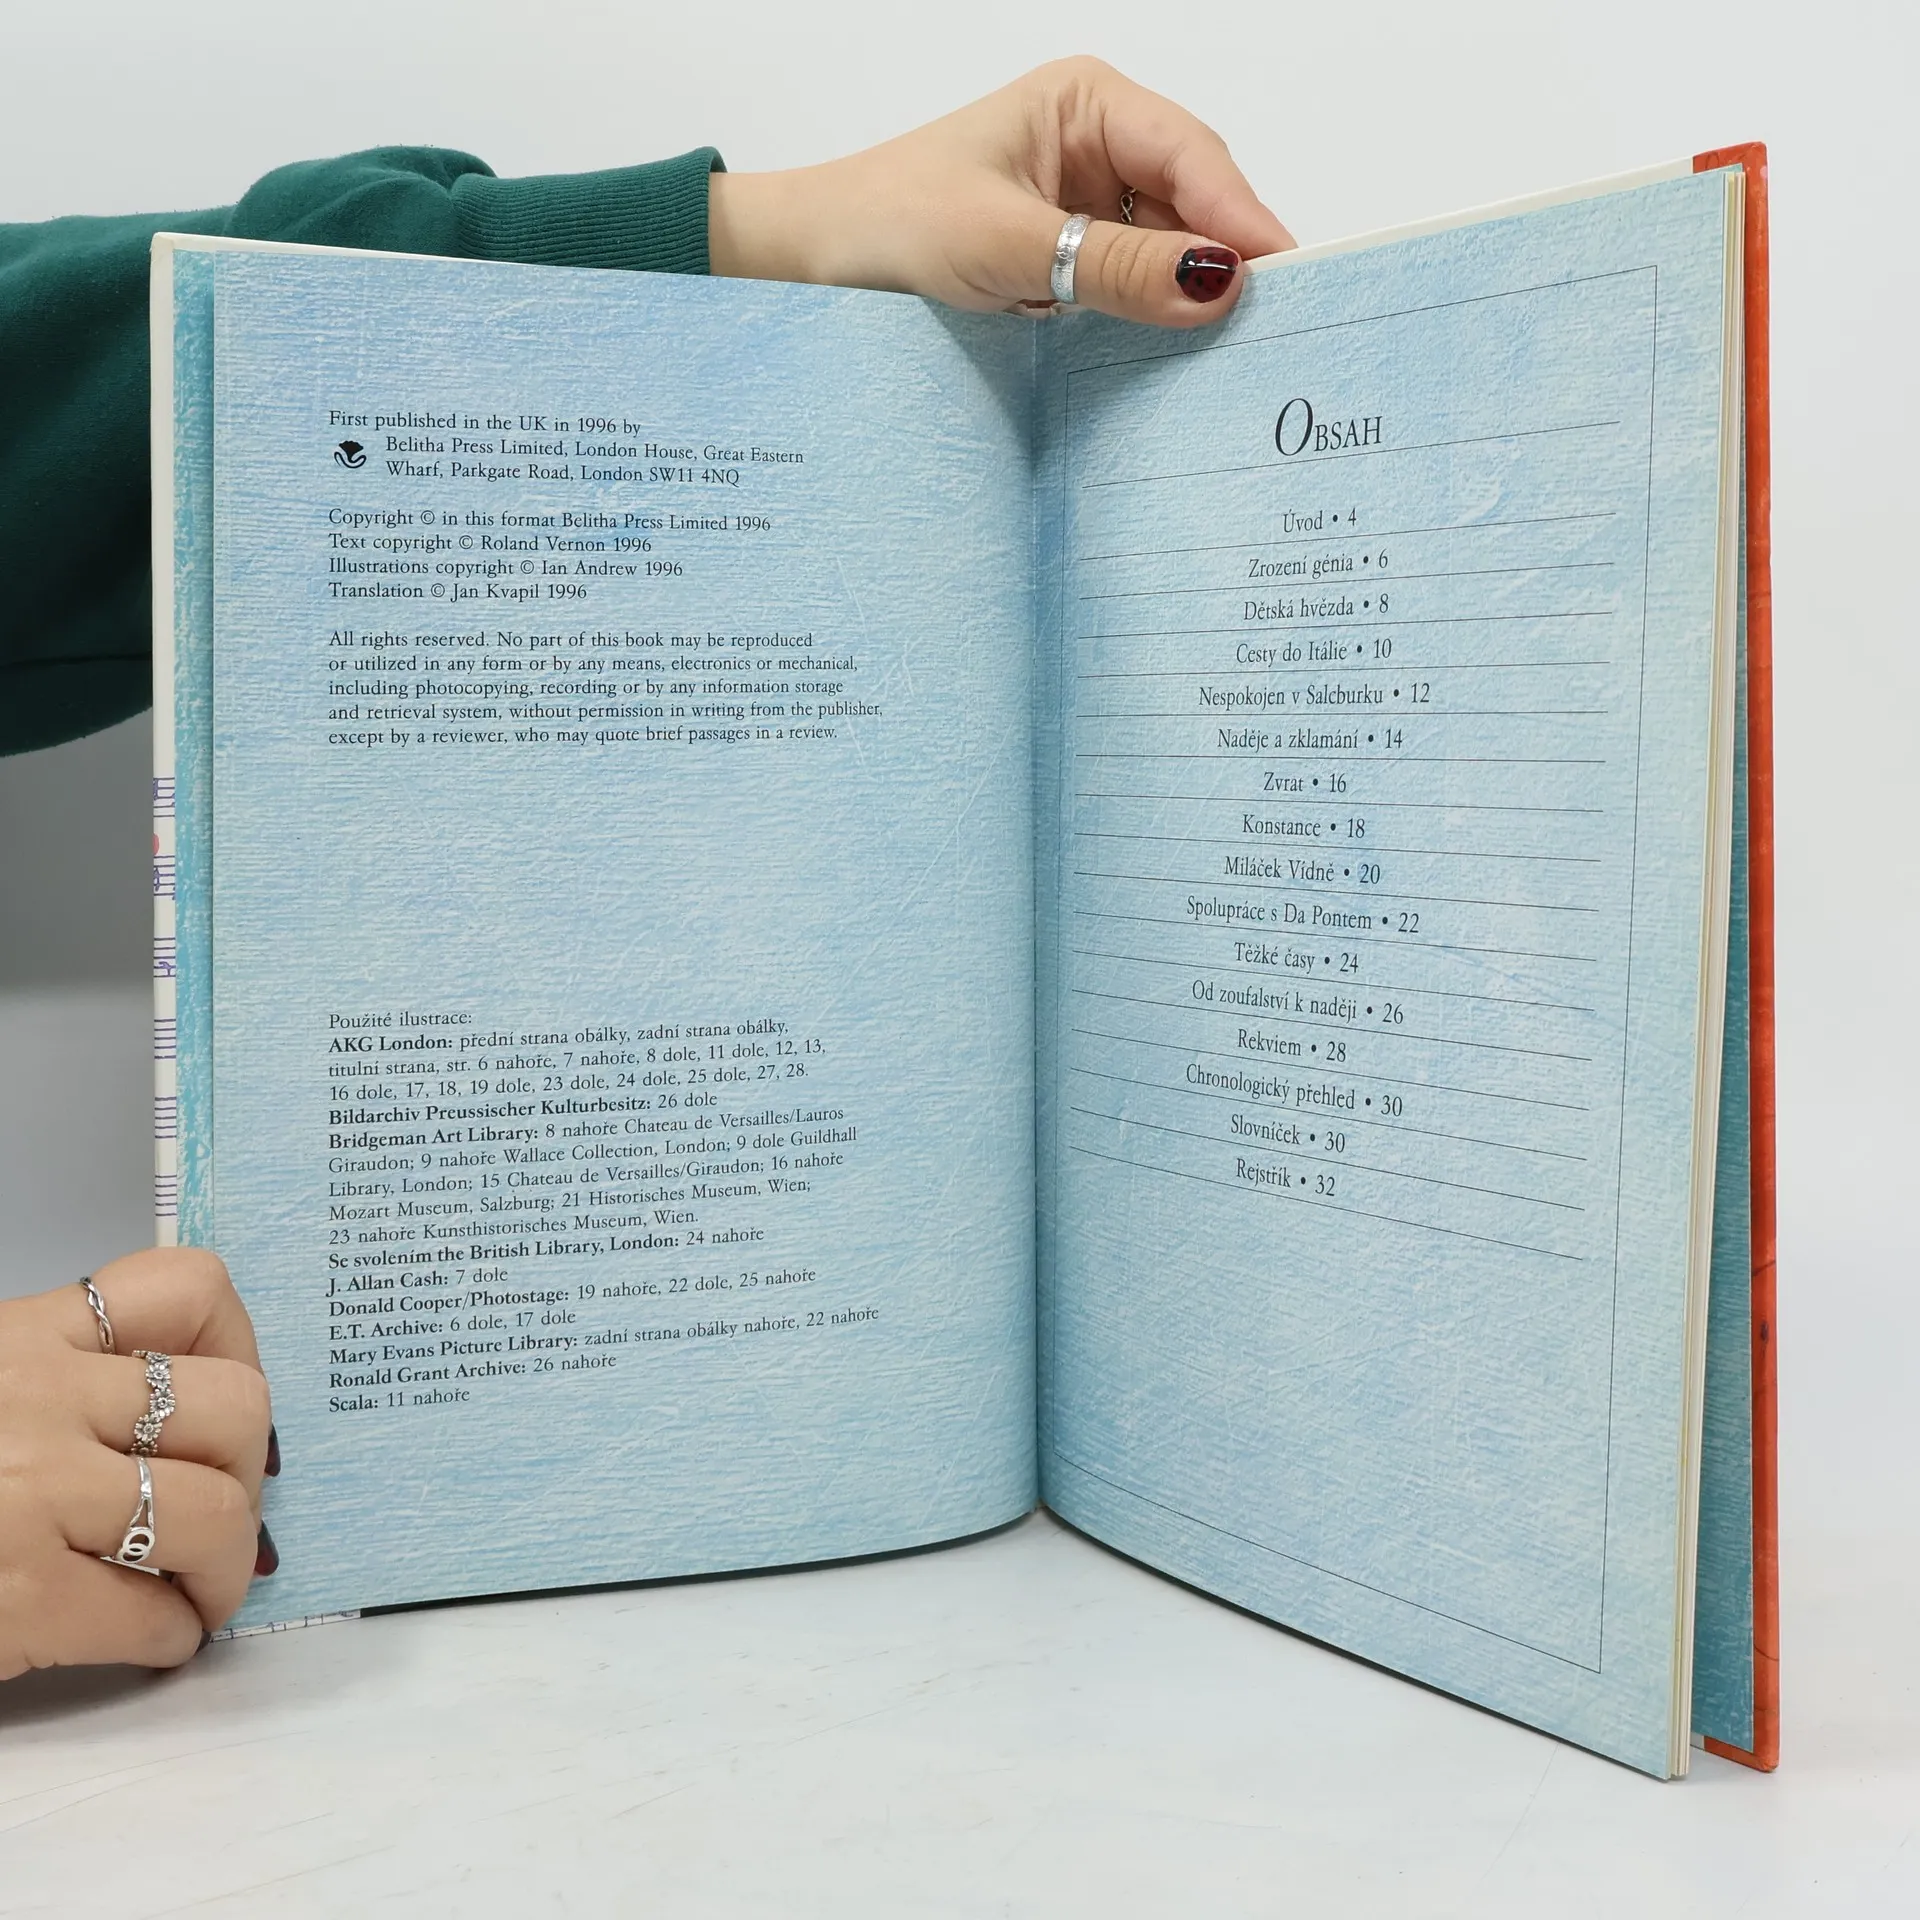 First published in the UK in 1996 by
Belitha Press Limited, London House, Great Eastern
Wharf, Parkgate Road, London SW11 4NQ
Copyright © in this format Belitha Press Limited 1996
Text copyright © Roland Vernon 1996
Illustrations copyright © Ian Andrew 1996
Translation © Jan Kvapil 1996
All rights reserved. No part of this book may be reproduced
or utilized in any form or by any means, electronics or mechanical,
including photocopying, recording or by any information storage
and retrieval system, without permission in writing from the publisher,
except by a reviewer, who may quote brief passages in a review.
Použité ilustrace:
AKG London: přední strana obálky, zadní strana obálky,
titulní strana, str. 6 nahoře, 7 nahoře, 8 dole, 11 dole, 12, 13,
16 dole, 17, 18, 19 dole, 23 dole, 24 dole, 25 dole, 27, 28.
Bildarchiv Preussischer Kulturbesitz: 26 dole
Bridgeman Art Library: 8 nahoře Chateau de Versailles/Lauros
Giraudon; 9 nahoře Wallace Collection, London; 9 dole Guildhall
Library, London; 15 Chateau de Versailles/Giraudon; 16 nahoře
Mozart Museum, Salzburg; 21 Historisches Museum, Wien;
23 nahoře Kunsthistorisches Museum, Wien.
Se svolením the British Library, London: 24 nahoře
J. Allan Cash: 7 dole
Donald Cooper/Photostage: 19 nahoře, 22 dole, 25 nahoře
E.T. Archive: 6 dole, 17 dole
Mary Evans Picture Library: zadní strana obálky nahoře, 22 nahoře
Ronald Grant Archive: 26 nahoře
Scala: 11 nahoře
OBSAH
Úvod • 4
Zrození génia • 6
Dětská hvězda • 8
Cesty do Itálie • 10
Nespokojen v Salcburku • 12
Naděje a zklamání • 14
Zvrat • 16
Konstance • 18
Miláček Vídně • 20
Spolupráce s Da Pontem • 22
Těžké časy • 24
Od zoufalství k naději • 26
Rekviem • 28
Chronologický přehled • 30
Slovníček • 30
Rejstřík • 32